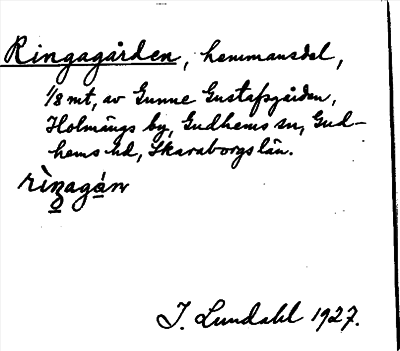 Ringagården, hemmansdel,
1/8 mt, av Gunne Gustafsgården,
Holmängs by, Gudhems sn, Gud-
hems hd, Skaraborgs län.
I. Lundahl 1927.